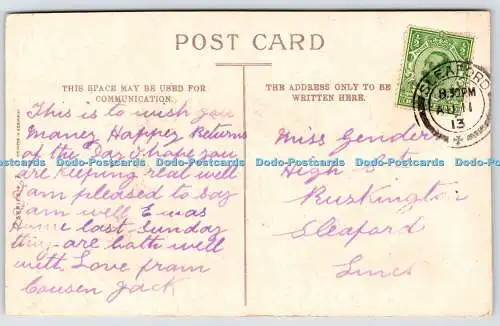 POST CARD
THIS SPACE MAY BE USED FOR
COMMUNICATION.
This is to wish you
Maney Happey Returns
of the Day I hope you
are keeping real well
I am pleased to say
I am well I was
Home last Sunday
they are both well
with Love from
Cousen Jack
THE ADDRESS ONLY TO BE
WRITTEN HERE.
Miss Gender
High St
Ruskington
Sleaford
Lincs
SLEAFORD
8.30PM
AU 11
13
Dodo-Postcards Dodo-Postcards Dodo-Postcards Dodo-Postcards Dodo-Postcards